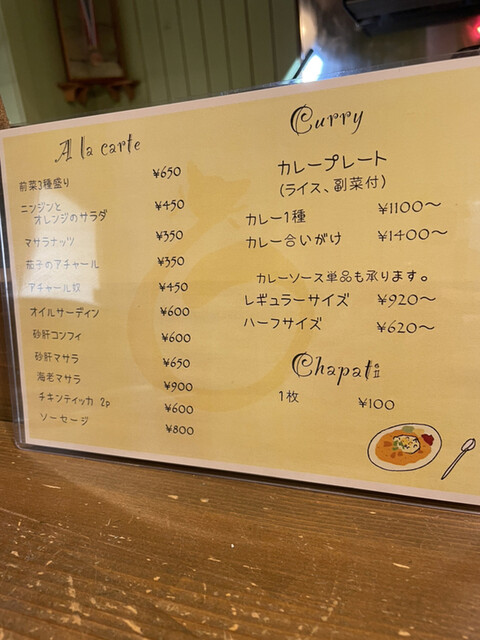 A la carte
前菜3種盛り ¥650
ニンジンと
オレンジのサラダ ¥450
マサラナッツ ¥350
茄子のアチャール ¥350
アチャール奴 ¥450
オイルサーディン ¥600
砂肝コンフィ ¥600
砂肝マサラ ¥650
海老マサラ ¥900
チキンティッカ 2p ¥600
ソーセージ ¥800
Curry
カレープレート
(ライス、副菜付)
カレー1種 ¥1100〜
カレー合いがけ ¥1400〜
カレーソース単品も承ります。
レギュラーサイズ ¥920〜
ハーフサイズ ¥620〜
Chapati
1枚 ¥100